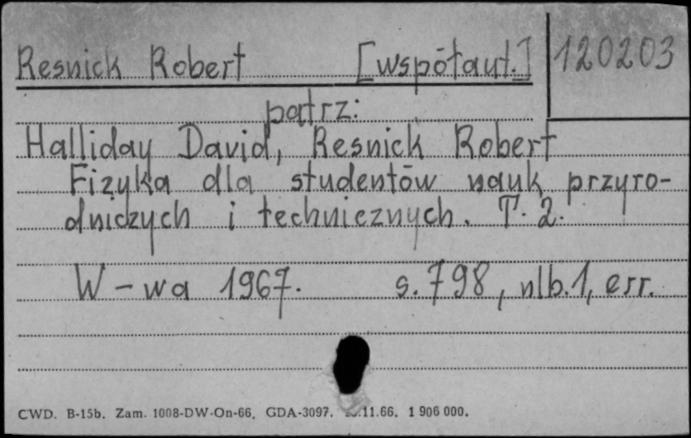 Resnick Robert [współaut.] 120203
patrz:
Halliday David, Resnick Robert
Fizyka dla studentów nauk przyro-
dniczych i technicznych. T. 2.
W-wa 1967. s. 798, nlb. 1, err.
CWD. B-15b. Zam. 1008-DW-On-66. GDA-3097. .11.66. 1 906 000.